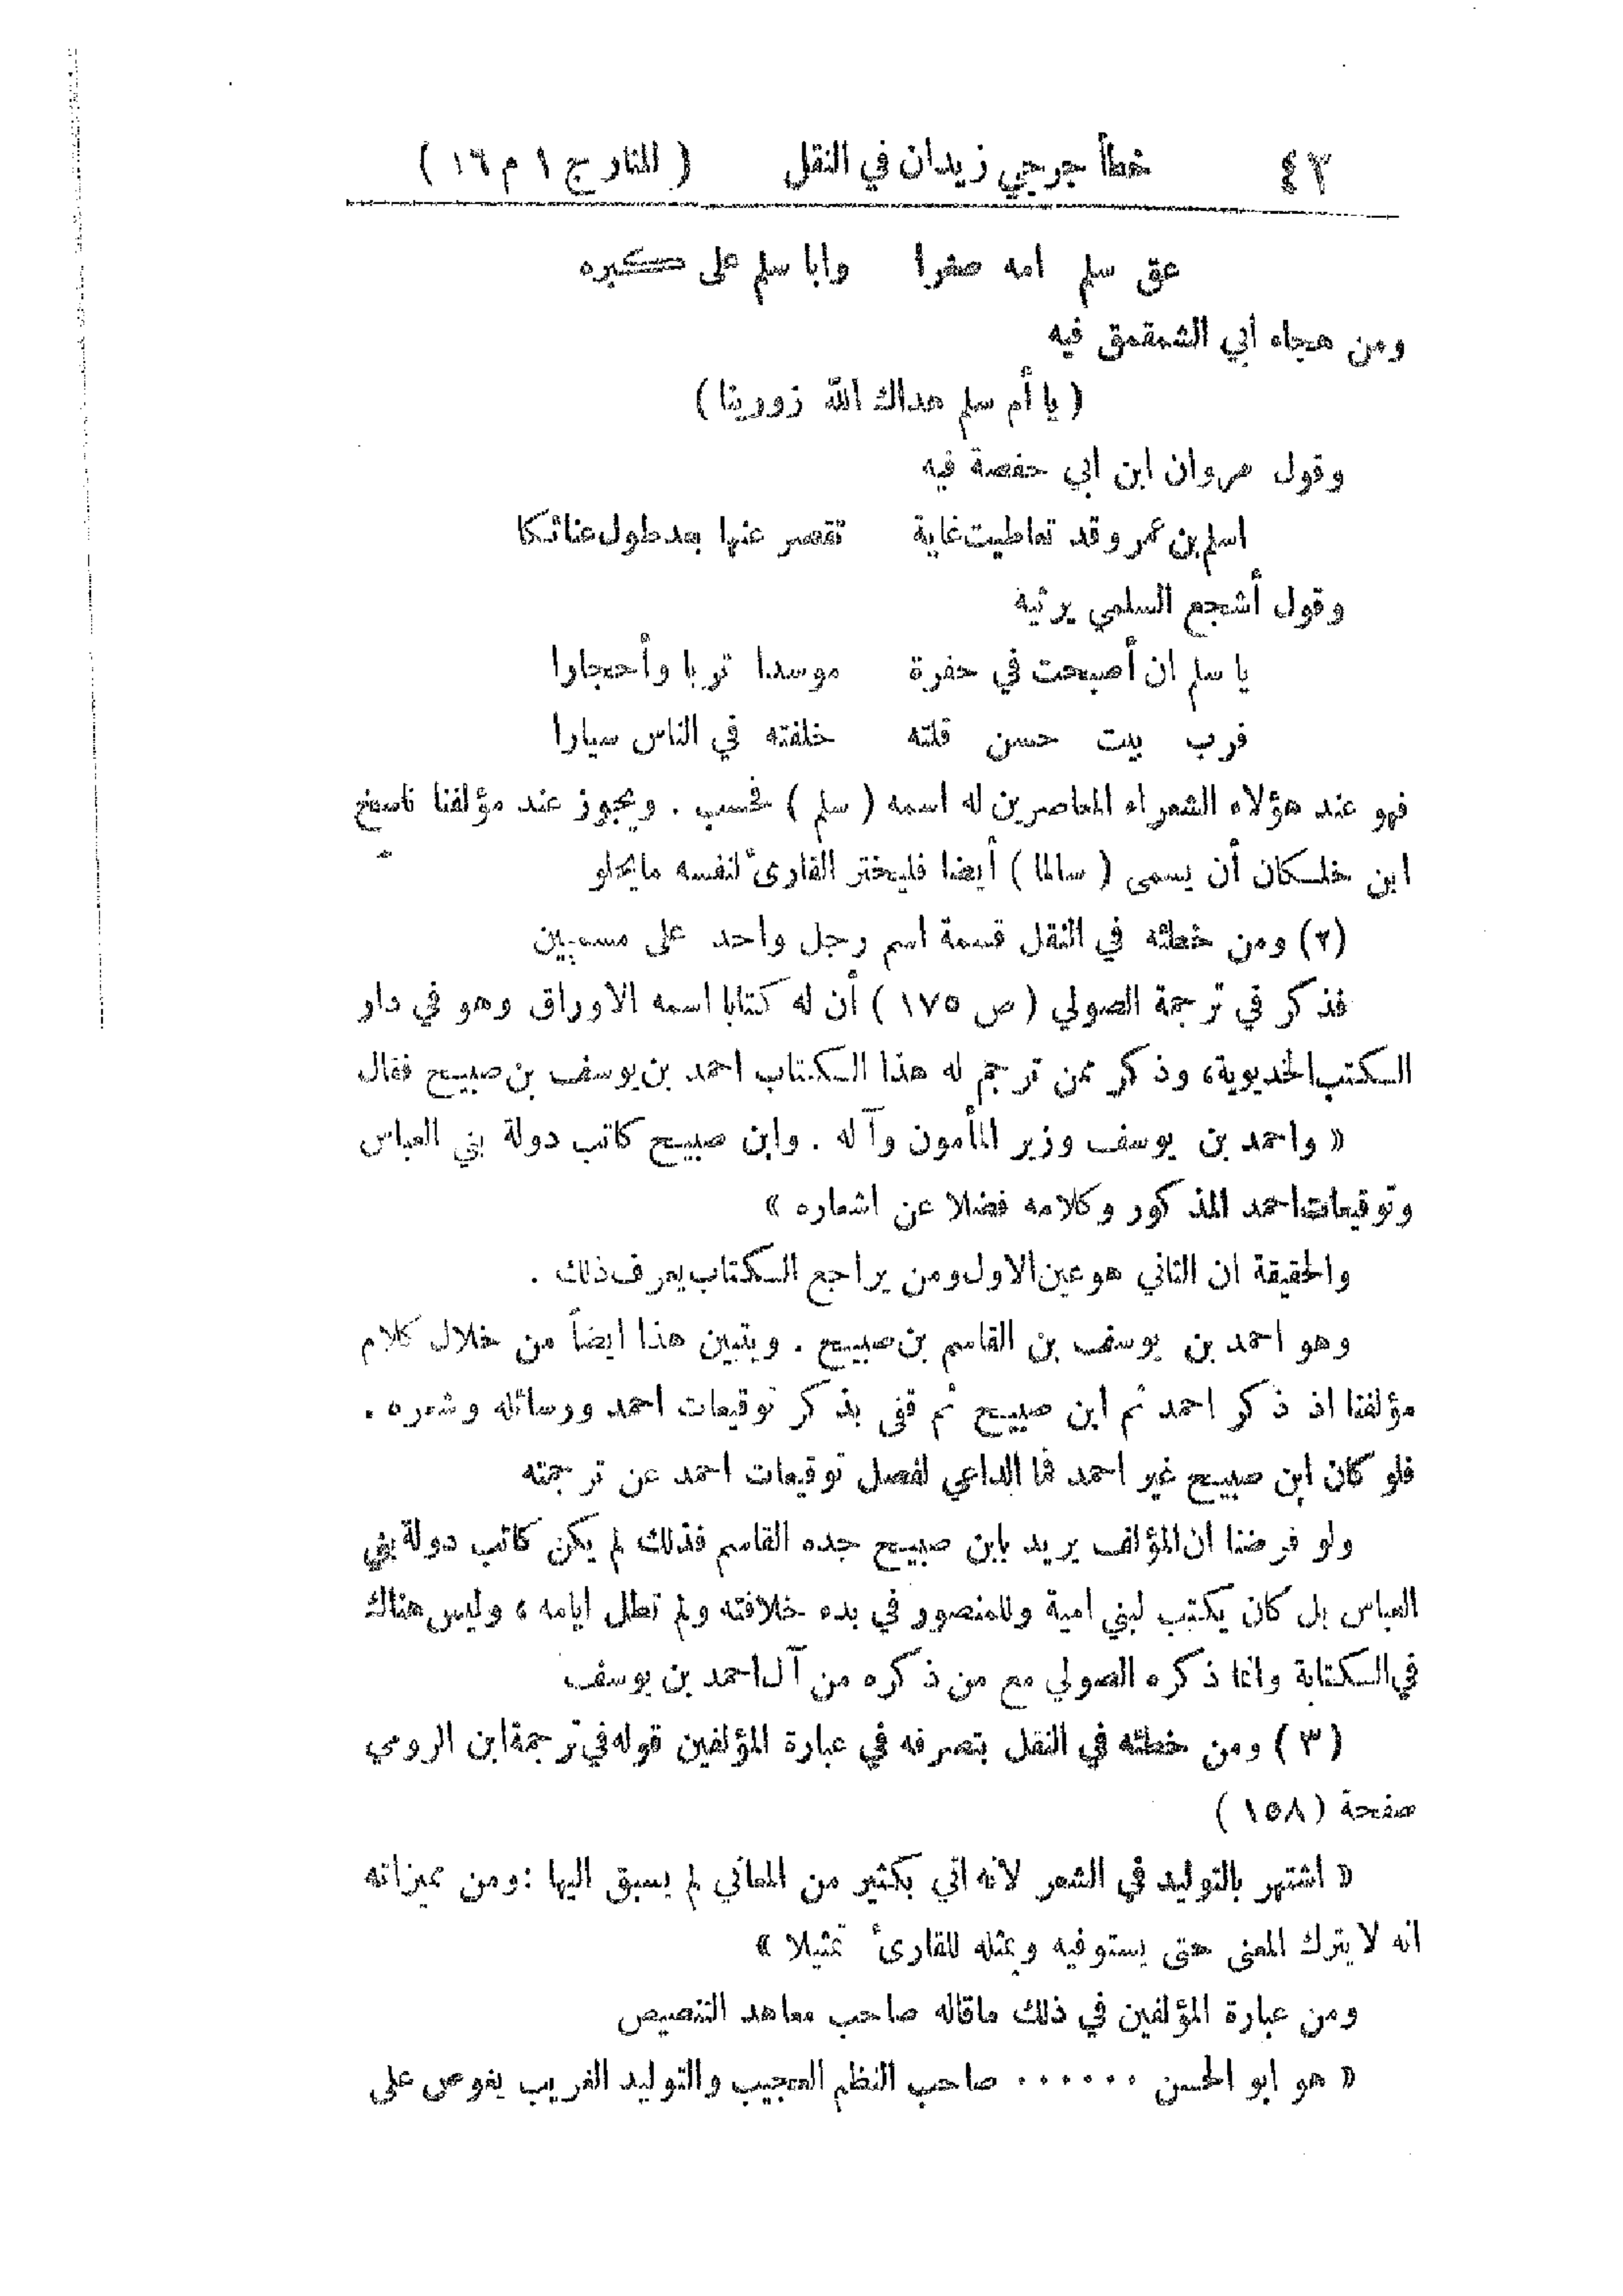 ٤٢ خطأ جرجي زيدان في النقل ( المنار ج ١ م ١٦ )
عق سلم امه صغرا وابا سلم على كبره
ومن هجاء أبي الشمقمق فيه
( يا أم سلم هداك الله زورينا )
وقول مروان ابن ابي حفصة فيه
اسلم بن عمر وقد تعاطيت غاية تقصر عنها بعد طول عنائكا
وقول أشجع السلمي يرثيه
يا سلم ان أصبحت في حفرة موسدا تربا وأحجارا
فرب بيت حسن قلته خلفته في الناس سيارا
فهو عند هؤلاء الشعراء المعاصرين له اسمه ( سلم ) فحسب . ويجوز عند مؤلفنا ناسخ
ابن خلكان أن يسمى ( سالما ) أيضا فليختر القارئ لنفسه مايحلو
(٢) ومن خطئه في النقل قسمة اسم رجل واحد على مسميين
فذكر في ترجمة الصولي ( ص ١٧٥ ) أن له كتابا اسمه الاوراق وهو في دار
الكتب الخديوية، وذكر ممن ترجم له هذا الكتاب احمد بن يوسف بن صبيح فقال
« واحمد بن يوسف وزير المأمون وآله . وابن صبيح كاتب دولة بني العباس
وتوقيعات احمد المذكور وكلامه فضلا عن اشعاره »
والحقيقة ان الثاني هو عين الاول ومن يراجع الكتاب يعرف ذلك .
وهو احمد بن يوسف بن القاسم بن صبيح . ويتبين هذا ايضاً من خلال كلام
مؤلفنا اذ ذكر احمد ثم ابن صبيح ثم قفى بذكر توقيعات احمد ورسائله وشعره .
فلو كان ابن صبيح غير احمد فما الداعي لفصل توقيعات احمد عن ترجمته
ولو فرضنا ان المؤلف يريد بابن صبيح جده القاسم فذلك لم يكن كاتب دولة بني
العباس بل كان يكتب لبني امية وللمنصور في بدء خلافته ولم تطل ايامه ، وليس هناك
في الكتابة وانما ذكره الصولي مع من ذكره من آل احمد بن يوسف
( ٣ ) ومن خطئه في النقل بتصرفه في عبارة المؤلفين قوله في ترجمة ابن الرومي
صفحة ( ١٥٨ )
« اشتهر بالتوليد في الشعر لانه اتي بكثير من المعاني لم يسبق اليها : ومن مميزاته
انه لا يترك المعنى حتى يستوفيه ويمثله للقارئ تمثيلا »
ومن عبارة المؤلفين في ذلك ماقاله صاحب معاهد التنصيص
« هو ابو الحسن ٠٠٠٠٠٠ صاحب النظم العجيب والتوليد الغريب يغوص على